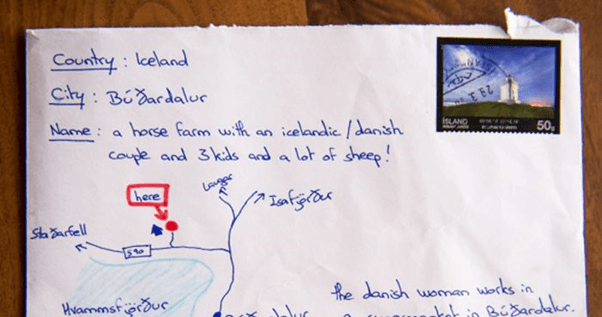 Country : Iceland
City : Búðardalur
Name : a horse farm with an icelandic/danish
couple and 3 kids and a lot of sheep!
ÍSLAND
50g
here
Laugar
Ísafjörður
Staðarfell
590
Hvammsfjörður
the danish woman works in
a supermarket in Búðardalur.